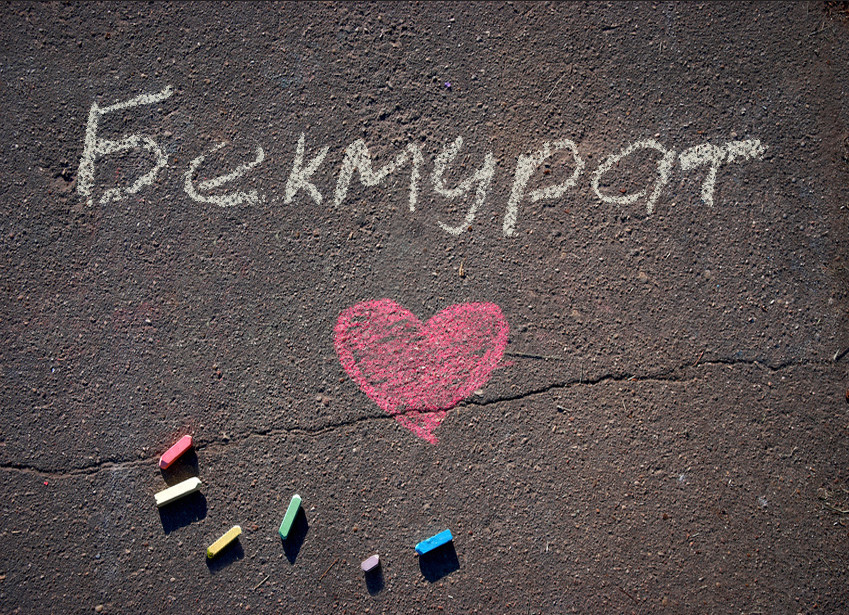 Бекмурат